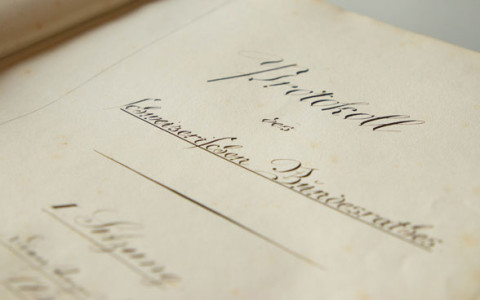 Protokoll
des
schweizerischen Bundesrathes
1 Sitzung